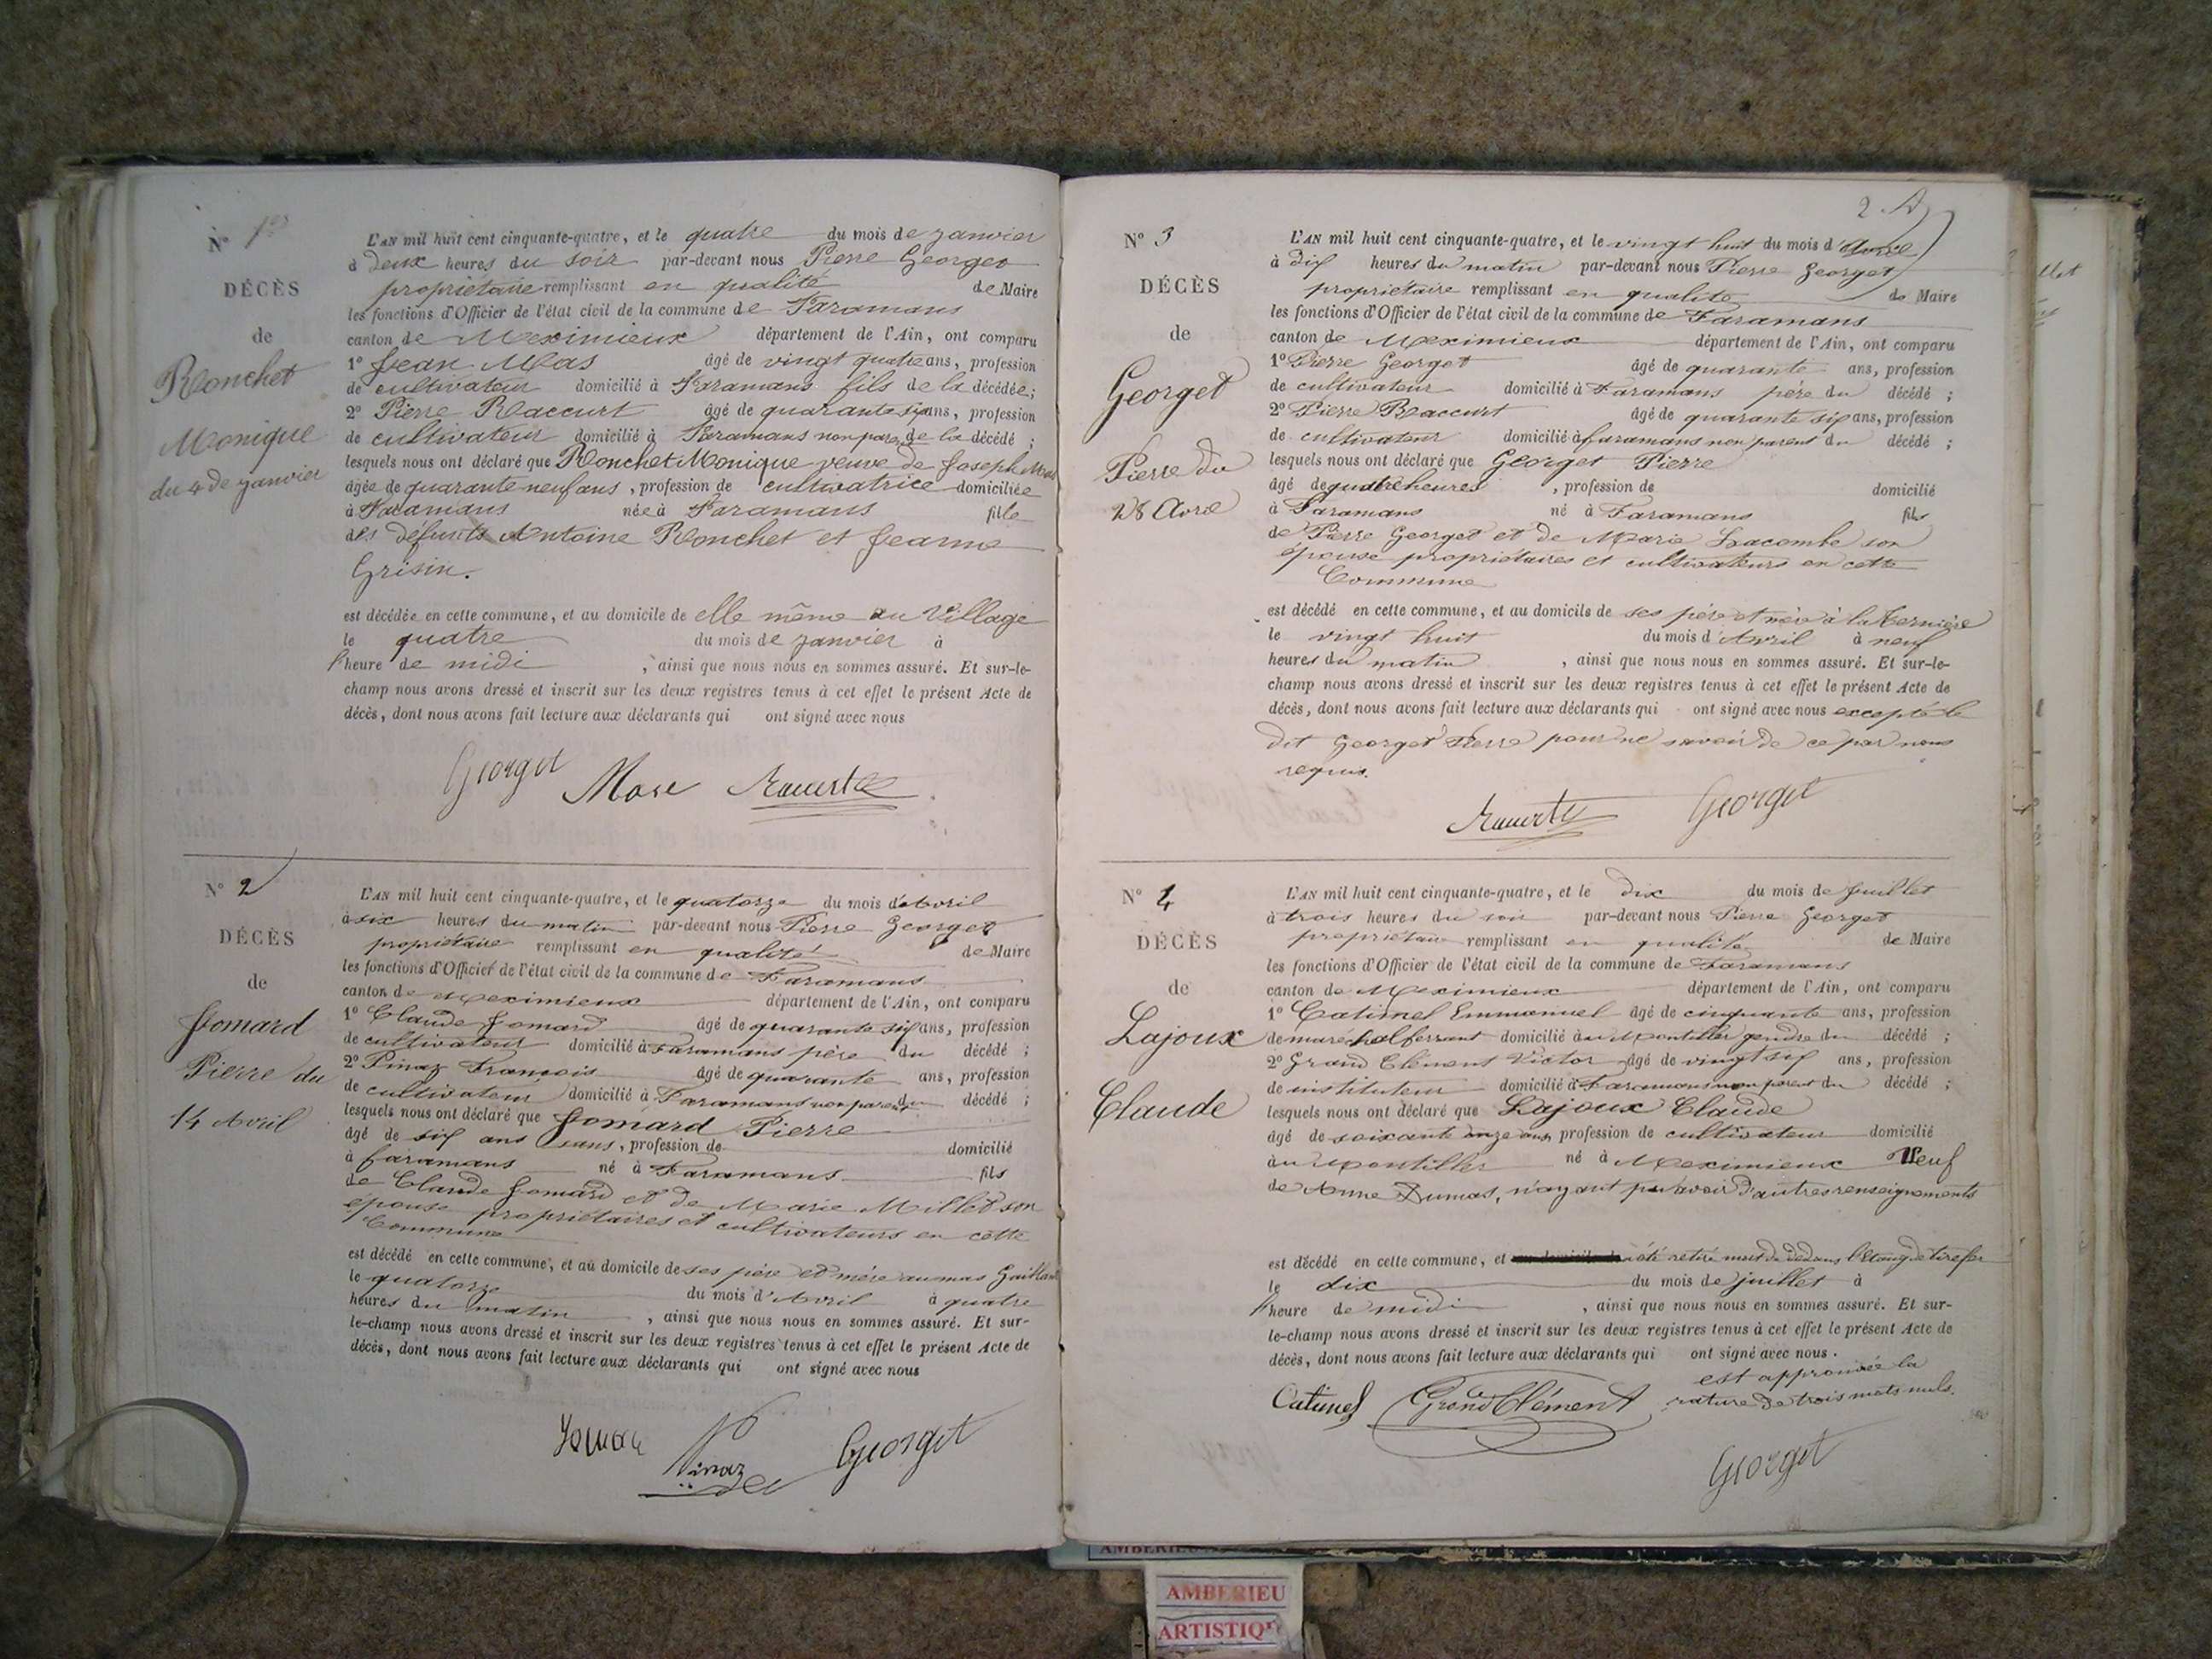 N° 1er
DÉCÈS
de
Ronchet
Monique
du 4 de janvier
L'AN mil huit cent cinquante-quatre, et le quatre du mois de janvier
à deux heures du soir par-devant nous Pierre Georget
propriétaire remplissant en qualité de Maire
les fonctions d'Officier de l'état civil de la commune de Faramans
canton de Meximieux département de l'Ain, ont comparu
1° Jean Mas âgé de vingt quatre ans, profession
de cultivateur domicilié à Faramans fils de la décédée;
2° Pierre Raccurt âgé de quarante six ans, profession
de cultivateur domicilié à Faramans non parent de la décédé;
lesquels nous ont déclaré que Ronchet Monique veuve de Joseph Mas
âgée de quarante neuf ans, profession de cultivatrice domiciliée
à Faramans née à Faramans fille
des défunts Antoine Ronchet et Jeanne
Grisin.
est décédée en cette commune, et au domicile de elle même au Village
le quatre du mois de janvier à
l'heure de midi, ainsi que nous nous en sommes assuré. Et sur-le-
champ nous avons dressé et inscrit sur les deux registres tenus à cet effet le présent Acte de
décès, dont nous avons fait lecture aux déclarants qui ont signé avec nous
Georget Mase Raccurt
N° 2
DÉCÈS
de
Jomard
Pierre du
14 Avril
L'AN mil huit cent cinquante-quatre, et le quatorze du mois d'Avril
à six heures du matin par-devant nous Pierre Georget
propriétaire remplissant en qualité de Maire
les fonctions d'Officier de l'état civil de la commune de Faramans
canton de Meximieux département de l'Ain, ont comparu
1° Claude Jomard âgé de quarante six ans, profession
de cultivateur domicilié à Faramans père du décédé;
2° Pinaz François âgé de quarante ans, profession
de cultivateur domicilié à Faramans non parent du décédé;
lesquels nous ont déclaré que Jomard Pierre
âgé de six ans sans, profession de domicilié
à faramans né à Faramans fils
de Claude Jomard et de Marie Millet son
épouse propriétaires et cultivateurs en cette
Commune
est décédé en cette commune, et au domicile de ses père et mère au mas Gaillard
le quatorze du mois d'Avril à quatre
heures du matin, ainsi que nous nous en sommes assuré. Et sur-
le-champ nous avons dressé et inscrit sur les deux registres tenus à cet effet le présent Acte de
décès, dont nous avons fait lecture aux déclarants qui ont signé avec nous
Pinaz Georget
2
N° 3
DÉCÈS
de
Georget
Pierre du
28 Avril
L'AN mil huit cent cinquante-quatre, et le vingt huit du mois d'Avril
à dix heures du matin par-devant nous Pierre Georget
propriétaire remplissant en qualité de Maire
les fonctions d'Officier de l'état civil de la commune de Faramans
canton de Meximieux département de l'Ain, ont comparu
1° Pierre Georget âgé de quarante ans, profession
de cultivateur domicilié à Faramans père du décédé;
2° Pierre Raccurt âgé de quarante six ans, profession
de cultivateur domicilié à faramans non parent du décédé;
lesquels nous ont déclaré que Georget Pierre
âgé de quatre heures, profession de domicilié
à Faramans né à Faramans fils
de Pierre Georget et de Marie Lacombe son
épouse propriétaires et cultivateurs en cette
Commune
est décédé en cette commune, et au domicils de ses père et mère à la
le vingt huit du mois d'Avril à neuf
heures du matin, ainsi que nous nous en sommes assuré. Et sur-le-
champ nous avons dressé et inscrit sur les deux registres tenus à cet effet le présent Acte de
décès, dont nous avons fait lecture aux déclarants qui ont signé avec nous excepté le
dit Georget Pierre pour ne savoir de ce par nous
requis.
Raccurt Georget
N° 4
DÉCÈS
de
Lajoux
Claude
L'AN mil huit cent cinquante-quatre, et le dix du mois de juillet
à trois heures du soir par-devant nous Pierre Georget
propriétaire remplissant en qualité de Maire
les fonctions d'Officier de l'état civil de la commune de Faramans
canton de Meximieux département de l'Ain, ont comparu
1° Catimel Emmanuel âgé de cinquante ans, profession
de maréchal ferrant domicilié au Montillier gendre du décédé;
2° Grand Clément Victor âgé de vingt six ans, profession
de instituteur domicilié à Faramans non parent du décédé;
lesquels nous ont déclaré que Lajoux Claude
âgé de soixante onze ans, profession de cultivateur domicilié
au Montillier né à Meximieux Veuf
de Anne Dumas, n'ayant pu avoir d'autres renseignements
est décédé en cette commune, et a été retiré mort de dedans l'étang de tirefer
le dix du mois de juillet à
l'heure de midi, ainsi que nous nous en sommes assuré. Et sur-
le-champ nous avons dressé et inscrit sur les deux registres tenus à cet effet le présent Acte de
décès, dont nous avons fait lecture aux déclarants qui ont signé avec nous.
est approuvée la
rature de trois mots nuls.
Catimel Grand Clément
Georget
AMBERIEU
ARTISTIQ